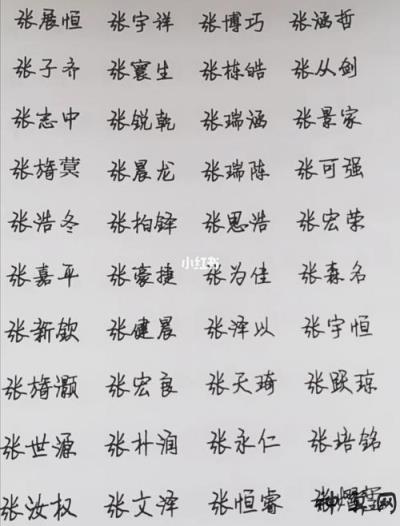 张展恒 张宇祥 张博巧 张涵哲
张子齐 张寰生 张栋皓 张从剑
张志中 张锐乾 张瑞涵 张景家
张旖蓂 张晨龙 张瑞陈 张可强
张浩冬 张柏铎 张思浩 张宏荣
小红书
张嘉平 张豪捷 张为佳 张森名
张新钦 张健晨 张泽以 张宇恒
张旖灏 张宏良 张天琦 张跃琼
张世源 张朴润 张永仁 张培铭
张汝权 张文泽 张恒睿